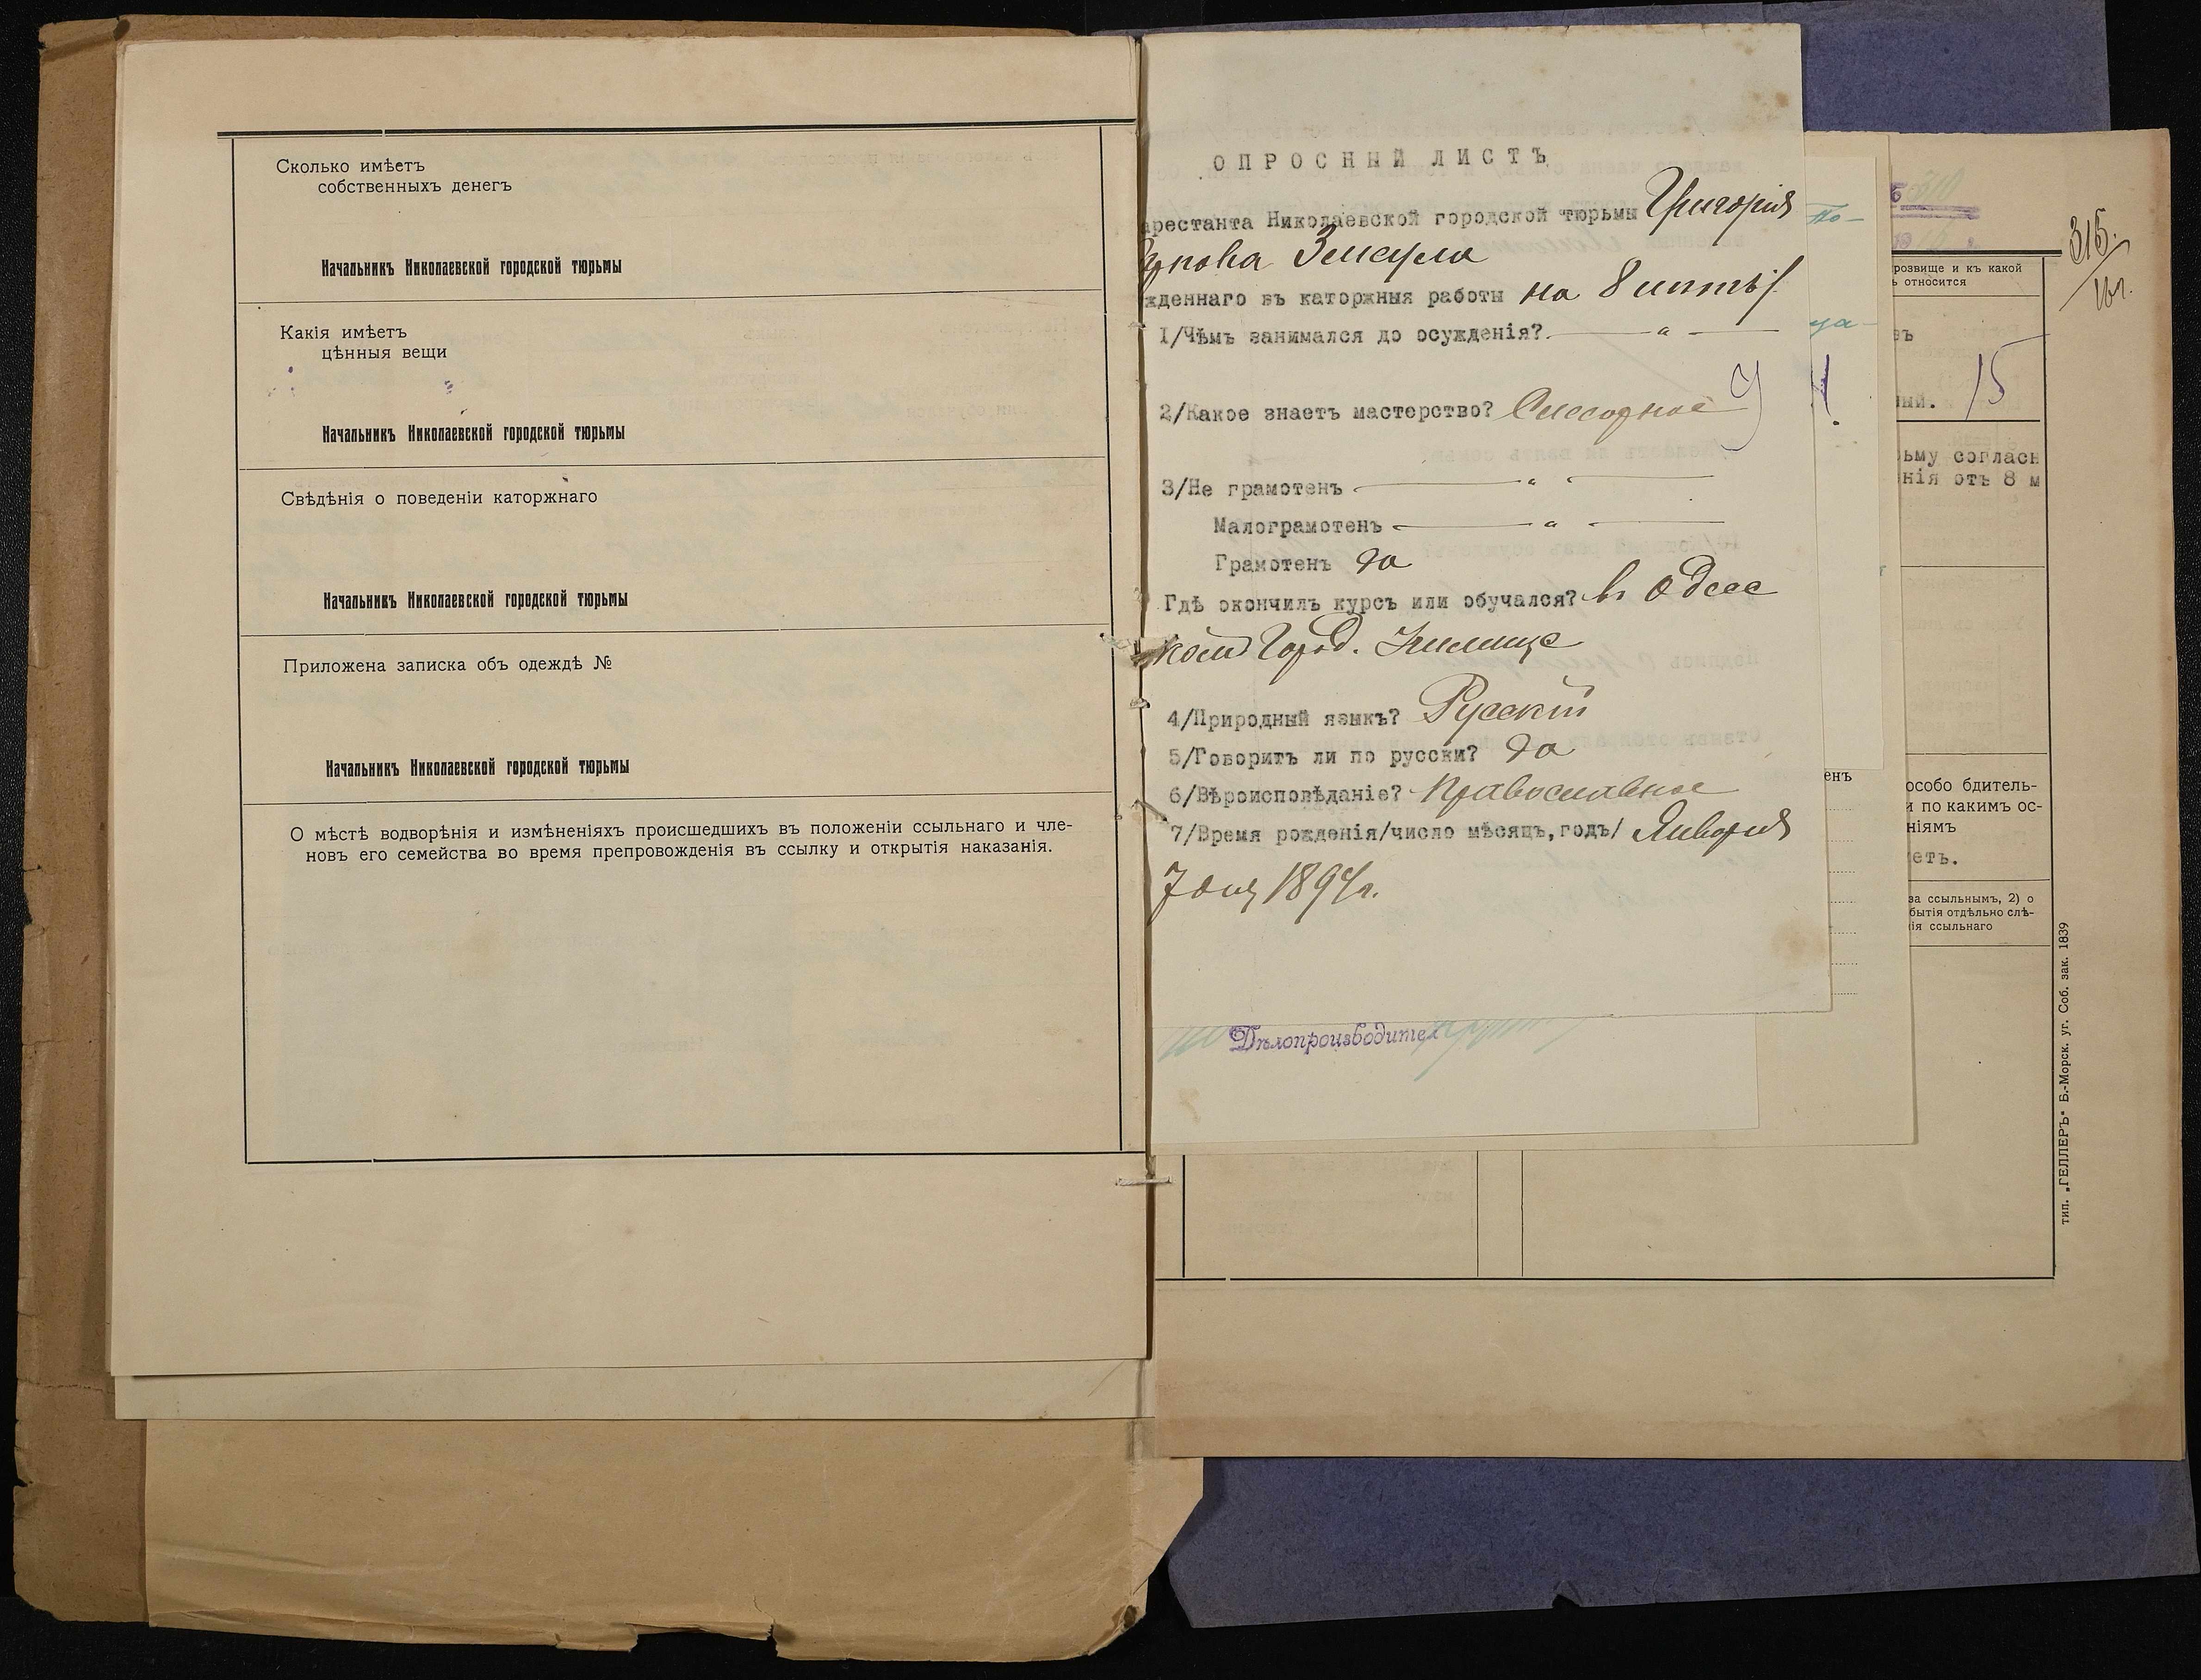 Сколько имѣетъ
собственныхъ денегъ
Начальникъ Николаевской городской тюрьмы
Какія имѣетъ
цѣнныя вещи
Начальникъ Николаевской городской тюрьмы
Свѣдѣнія о поведеніи каторжнаго
Начальникъ Николаевской городской тюрьмы
Приложена записка объ одеждѣ №
Начальникъ Николаевской городской тюрьмы
О мѣстѣ водворѣнія и измѣненіяхъ происшедшихъ въ положеніи ссыльнаго и чле-
новъ его семейства во время препровожденія въ ссылку и открытія наказанія.
ОПРОСНЫЙ ЛИСТЪ
арестанта Николаевской городской тюрьмы Григорія
жденнаго въ каторжныя работы на 8 лѣтъ/
1/Чѣмъ занимался до осужденія? — " —
2/Какое знаетъ мастерство? Слесарное
3/Не грамотенъ — " —
Малограмотенъ — " —
Грамотенъ да
Гдѣ окончилъ курсъ или обучался? въ Одесс
ком Город. Училище
4/Природный языкъ? Русскій
5/Говоритъ ли по русски? да
6/Вѣроисповѣданіе? Православное
7/Время рожденія/число мѣсяцъ, годъ/ Января
7 дня 1894 г.
Дѣлопроизводител
по-
енъ
315.
16 г.
розвище и къ какой
ь относится
въ
ный. 15
ьму соглас
нія отъ 8 м
особо бдитель-
и по какимъ ос-
ніямъ
етъ.
за ссыльнымъ, 2) о
бытія отдѣльно слѣ-
ія ссыльнаго
тип. „ГЕЛЛЕРЪ" Б.-Морск. уг. Соб. зак. 1839